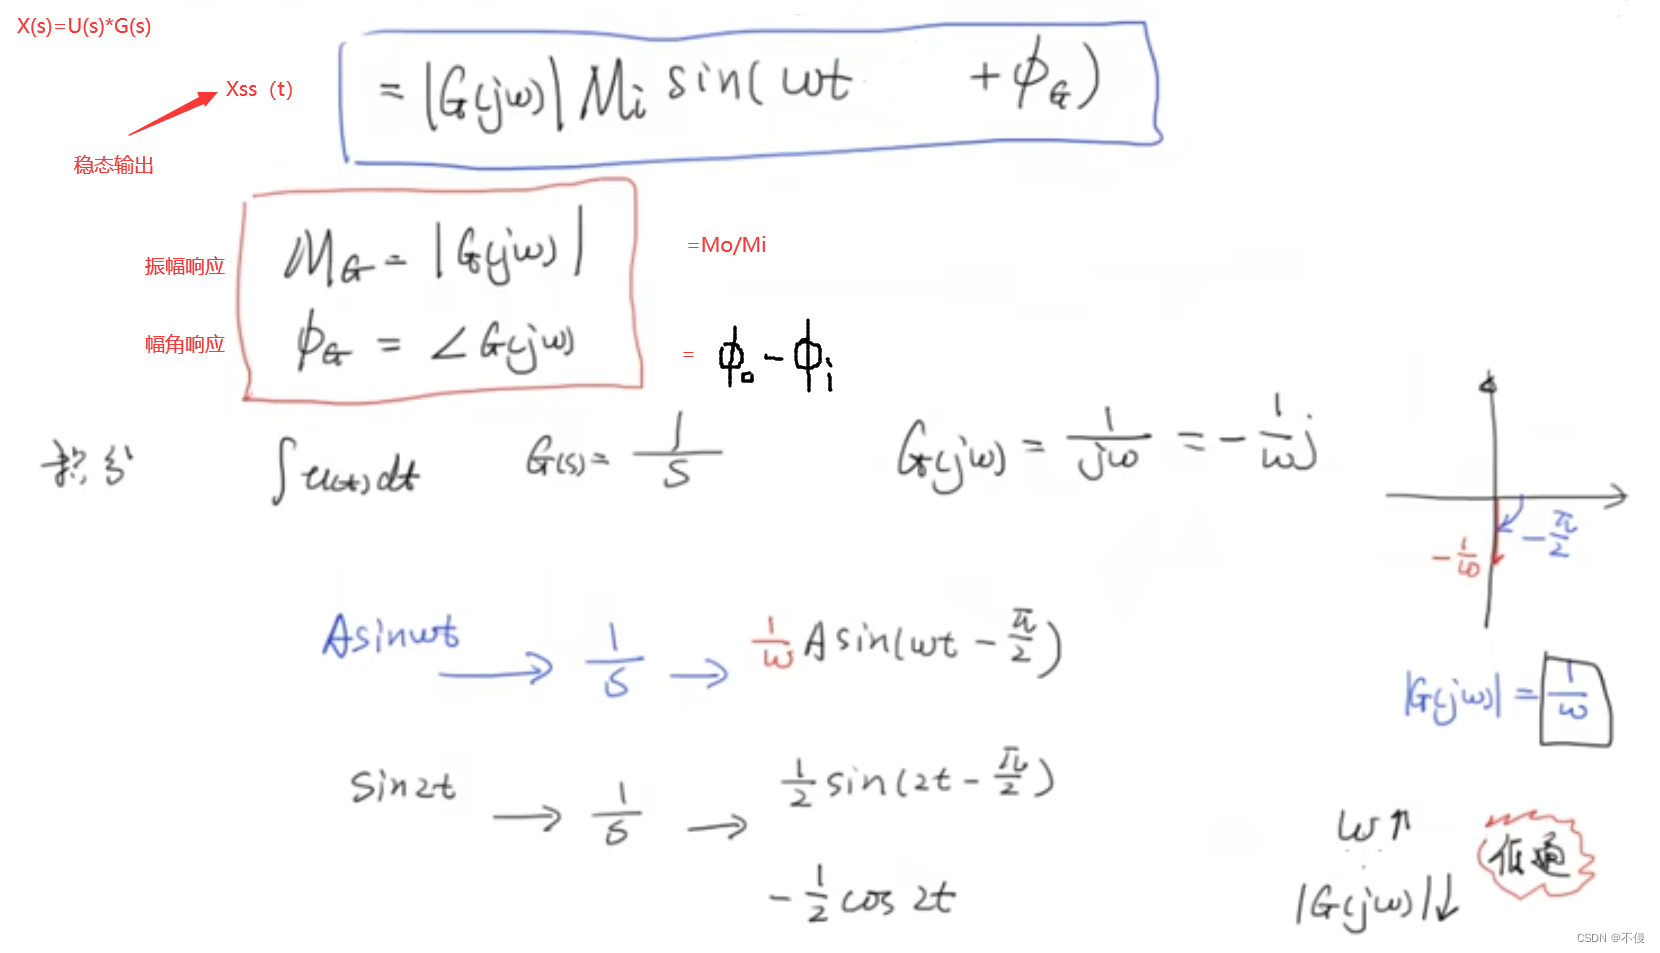 X(s)=U(s)*G(s)
Xss（t） = |G(jω)| Mi sin(ωt +ϕG)
稳态输出
振幅响应 MG = |G(jω)| =Mo/Mi
幅角响应 ϕG = ∠G(jω) = ϕo - ϕi
积分 ∫u(t)dt G(s) = 1/s G(jω) = 1/jω = -1/ω j
-π/2
-1/ω
Asinωt → 1/s → 1/ω A sin(ωt - π/2)
|G(jω)| = 1/ω
sin2t → 1/s → 1/2 sin(2t - π/2)
ω↑
低通
-1/2 cos 2t
|G(jω)|↓
CSDN @不侵